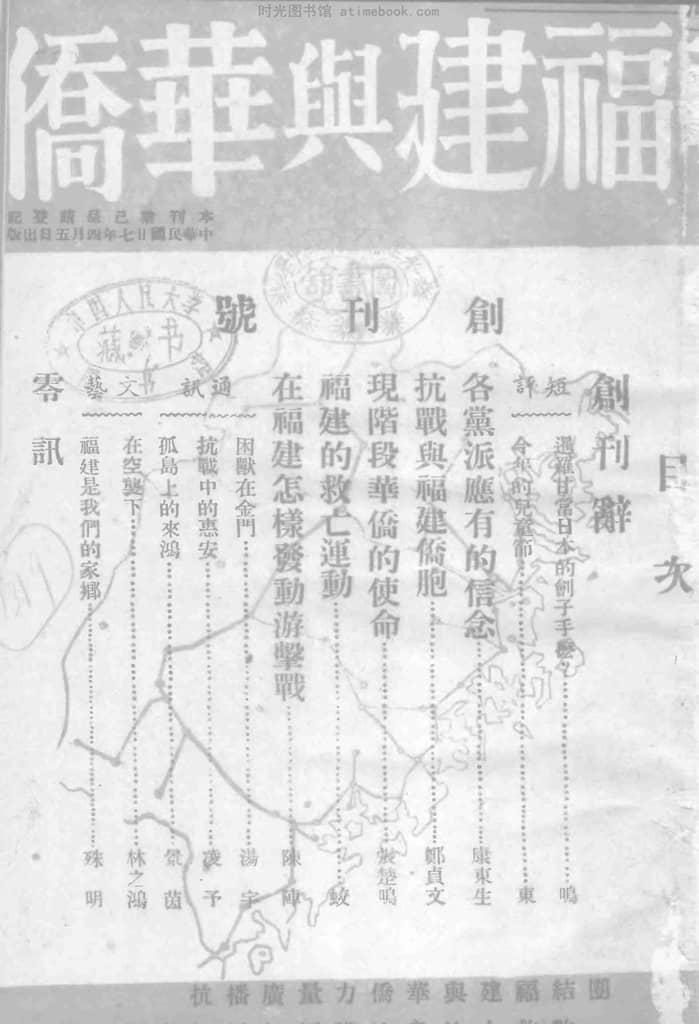 时光图书馆 atimebook.com
福建與華僑
本刊業已呈請登記
中華民國廿七年四月五日出版
創刊號
目次
創刊辭
短評
暹羅甘當日本的劊子手麼?……鳴
今年的兒童節……東
各黨派應有的信念……康東生
抗戰與福建僑胞……鄭貞文
現階段華僑的使命……張楚鳴
福建的救亡運動……蛟
在福建怎樣發動游擊戰……陳陣
通訊
困獸在金門……湯宇
抗戰中的惠安……凌予
孤島上的來鴻……景茵
文藝
在空襲下……林之鴻
福建是我們的家鄉……殊明
零訊
團結福建與華僑力量廣播抗